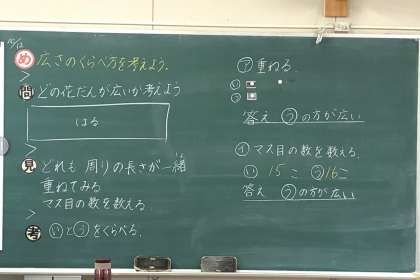 10/12
め 広さのくらべ方を考えよう。
問 どの花だんが広いか考えよう
はる
見 どれも 周りの長さが一緒
重ねてみる
マス目の数を数える。
考 いとうをくらべる。
ア 重ねる。
い
う
答え うの方が広い
イ マス目の数を数える。
い 15こ う 16こ
答え うの方が広い